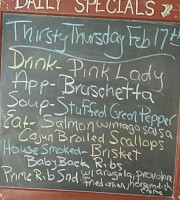 DAILY SPECIALS
Thirsty Thursday Feb 17th
Drink- Pink Lady
App- Bruschetta
Soup- Stuffed Green Pepper
Eat- Salmon w/mango salsa
Cajun Broiled Scallops
House Smoked- Brisket
Baby Back Ribs
Prime Rib Snd w/ arugula, provolone
fried onion, horseradish